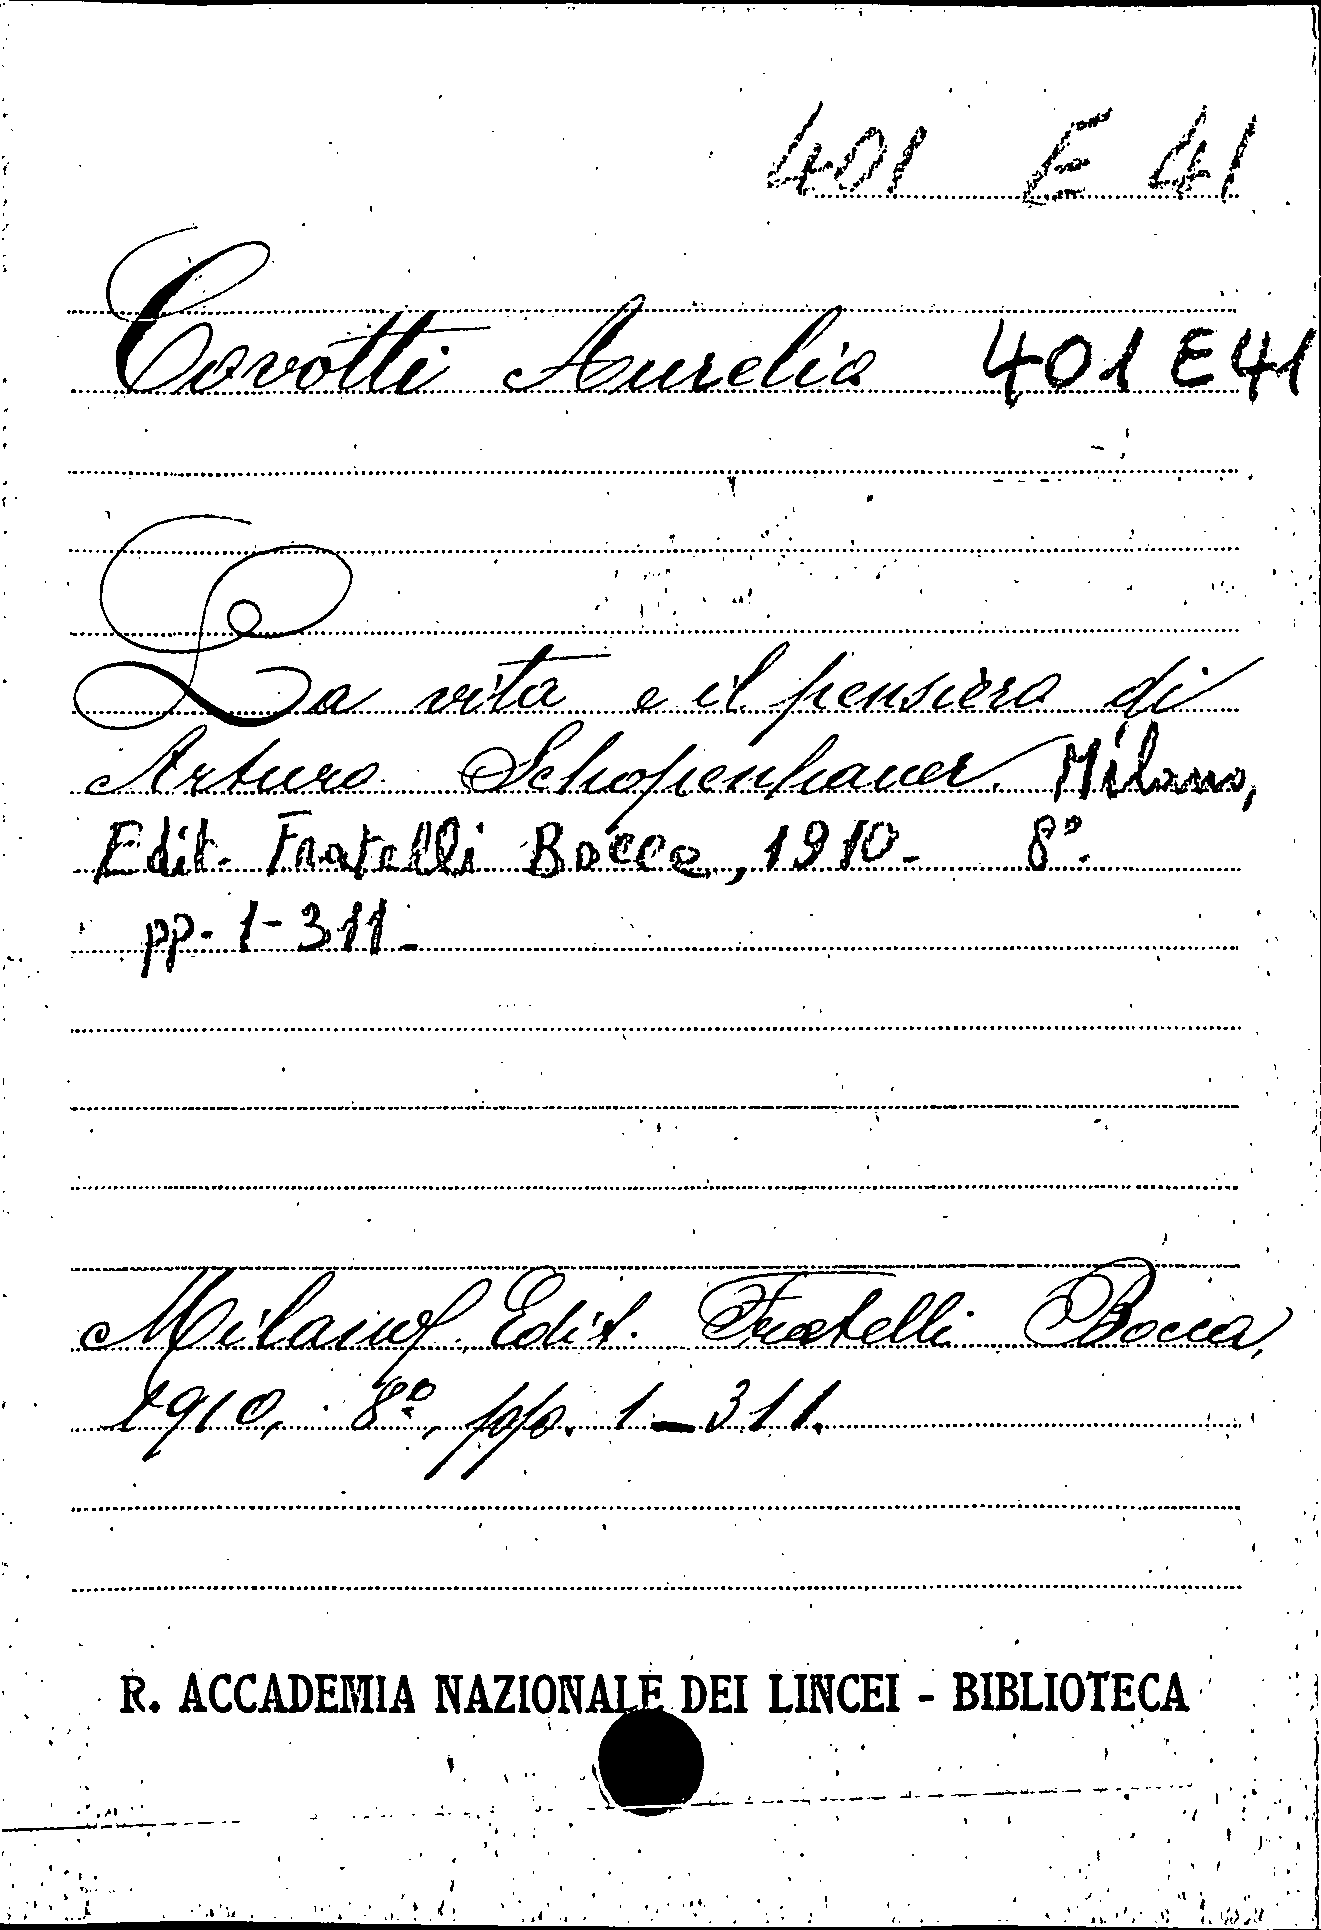 401 E 41
Covotti Aurelio 401 E 41
La vita e il pensiero di
Arturo Schopenhauer. Milano,
Edit. Fratelli Bocca, 1910. 8º.
pp. 1-311.
Milano, Edit. Fratelli Bocca,
1910, 8º, pp. 1-311.
R. ACCADEMIA NAZIONALE DEI LINCEI - BIBLIOTECA